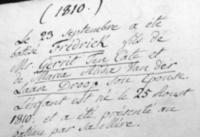 (1810.)
Le 23 Septembre a été
batisé Fredrick fils de
Mr. Gerrit Ten Cate et
de Maria Anna Van der
Laan Droog, son Epouse.
L'enfant est né le 25 Aoust
1810. et a été présenté au
par